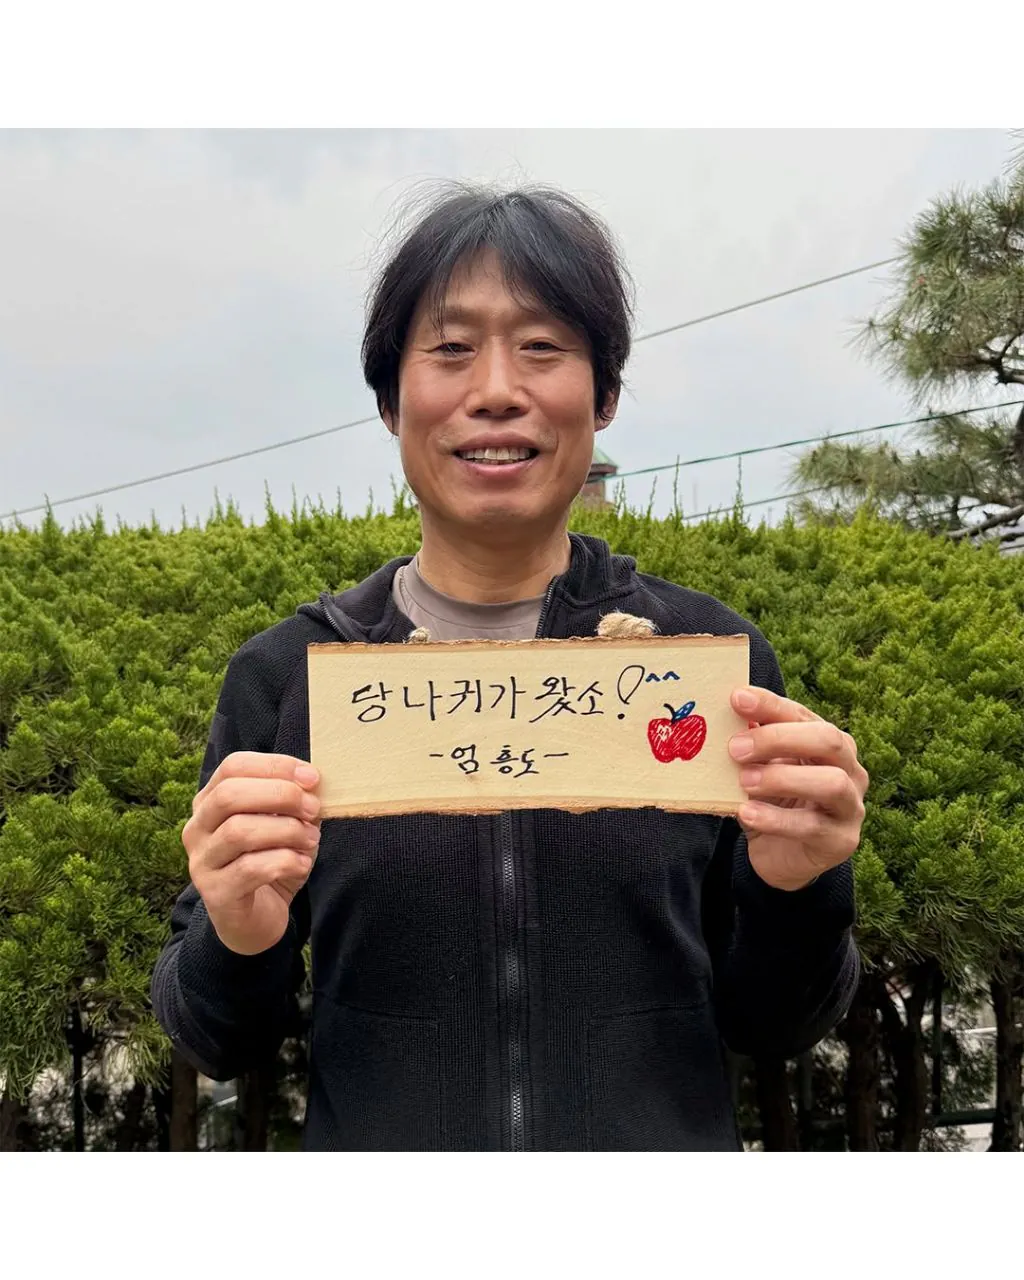 당나귀가 왔소!^^
-엄흥도-